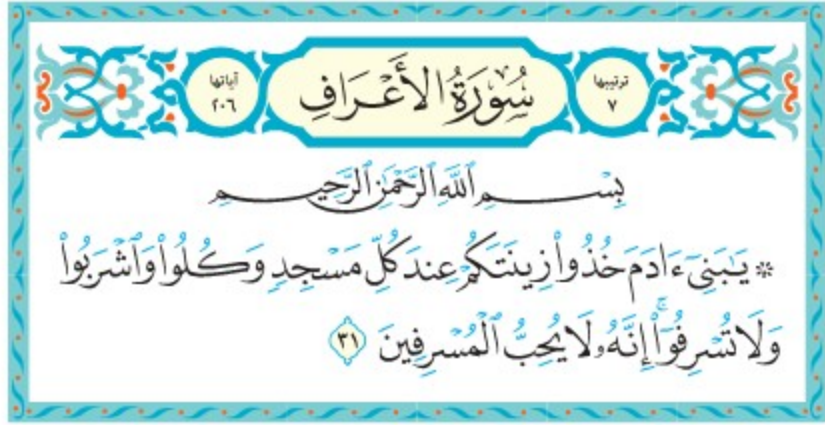 ترتيبها
٧
سُورَةُ الأَعْرَافِ
آياتها
٢٠٦
بِسْمِ ٱللَّهِ ٱلرَّحْمَٰنِ ٱلرَّحِيمِ
۞ يَٰبَنِىٓ ءَادَمَ خُذُوا۟ زِينَتَكُمْ عِندَ كُلِّ مَسْجِدٍ وَكُلُوا۟ وَٱشْرَبُوا۟
وَلَا تُسْرِفُوٓا۟ ۚ إِنَّهُۥ لَا يُحِبُّ ٱلْمُسْرِفِينَ ٣١